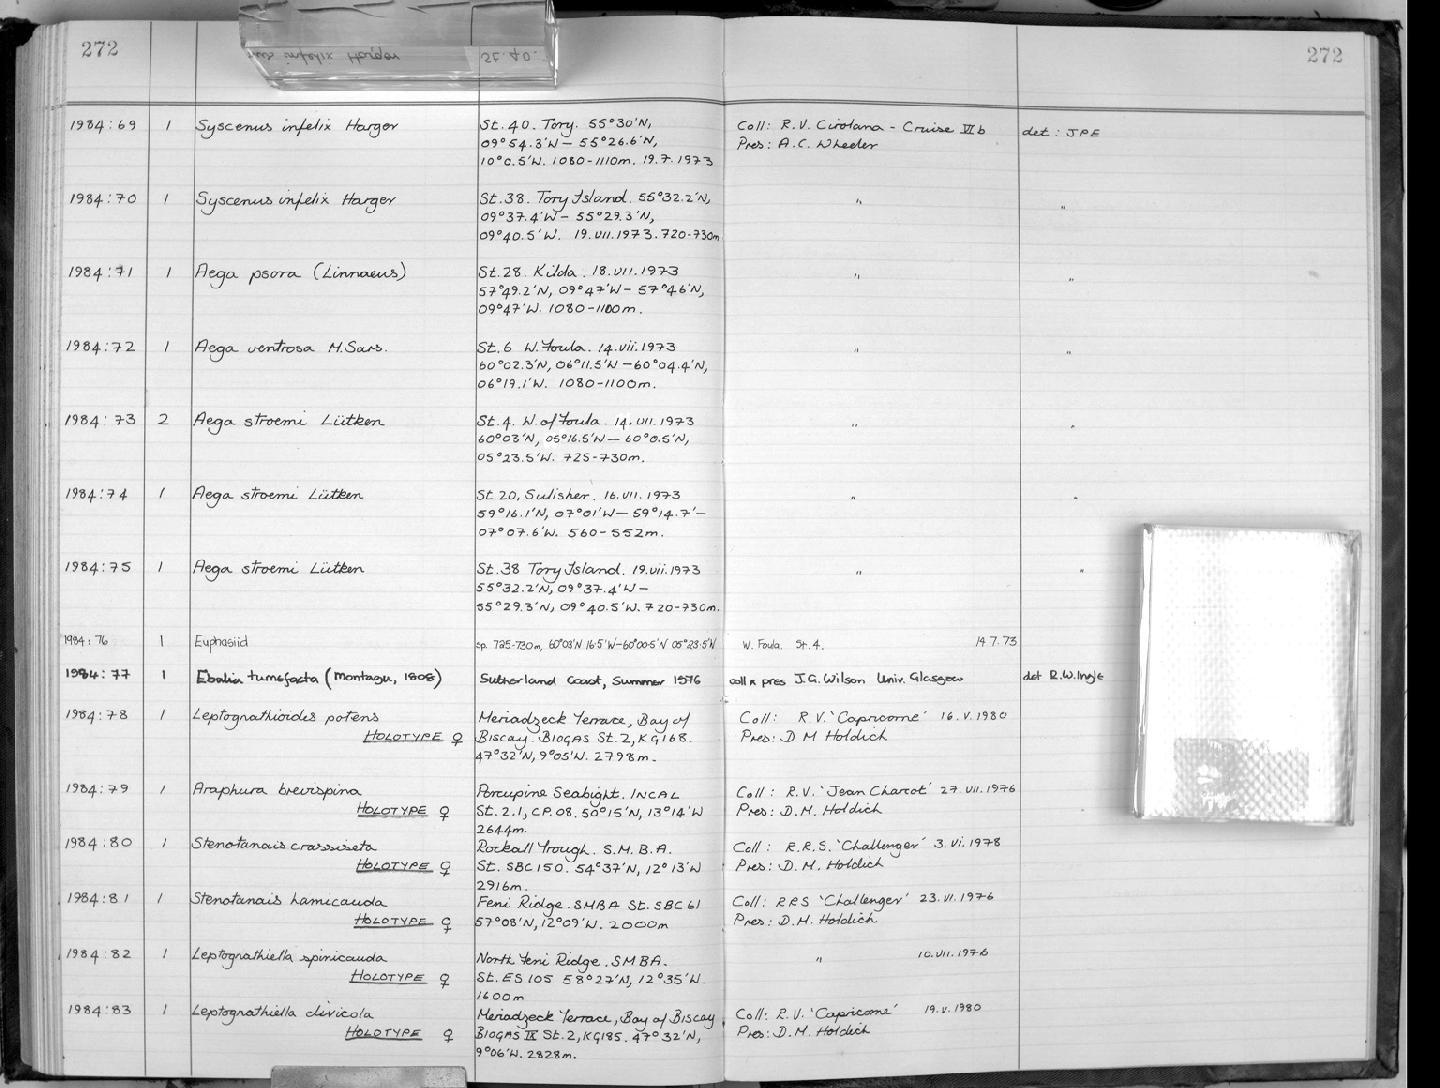 272
272
1984:69 1 Syscenus infelix Harger St. 40. Tory. 55°30'N, Coll: R.V. Cirolana - Cruise VIb det: JPE
09°54.3'W — 55°26.6'N, Pres: A.C. Wheeler
10°0.5'W. 1080-1110m. 19.7.1973
1984:70 1 Syscenus infelix Harger St. 38. Tory Island. 55°32.2'N, " "
09°37.4'W — 55°29.3'N,
09°40.5'W. 19.VII.1973. 720-730m
1984:71 1 Aega psora (Linnaeus) St. 28. Kilda. 18.VII.1973 " "
57°49.2'N, 09°47'W — 57°46'N,
09°47'W. 1080-1100m.
1984:72 1 Aega ventrosa M.Sars. St. 6 W. Foula. 14.vii.1973 " "
60°02.3'N, 06°11.5'W — 60°04.4'N,
06°19.1'W. 1080-1100m.
1984:73 2 Aega stroemi Lütken St. 4. W. of Foula. 14.VII.1973 " "
60°03'N, 05°16.5'W — 60°0.5'N,
05°23.5'W. 725-730m.
1984:74 1 Aega stroemi Lütken St 20, Sulisher. 16.VII.1973 " "
59°16.1'N, 07°01'W — 59°14.7'—
07°07.6'W. 560-552m.
1984:75 1 Aega stroemi Lütken St. 38 Tory Island. 19.vii.1973 " "
55°32.2'N, 09°37.4'W —
55°29.3'N, 09°40.5'W. 720-730m.
1984:76 1 Euphasiid sp. 725-730m, 60°03'N 16.5'W—60°00.5'N 05°23.5'W W. Foula. St. 4. 14 7. 73
1984:77 1 Ebalia tumefacta (Montagu, 1808) Sutherland Coast, Summer 1976 coll & pres J.G. Wilson Univ. Glasgow det R.W. Ingle
1984:78 1 Leptognathioides potens Meriadzeck Terrace, Bay of Coll: R.V. 'Capricorne' 16.V.1980
HOLOTYPE ♀ Biscay. BIOGAS St. 2, KG168. Pres: D M Holdich
47°32'N, 9°05'W. 2798m.
1984:79 1 Araphura brevispina Porcupine Seabight. INCAL Coll: R.V. 'Jean Charcot' 27.VII.1976
HOLOTYPE ♀ St. 2.1, CP.08. 50°15'N, 13°14'W Pres: D.M. Holdich
2644m.
1984:80 1 Stenotanais crassiseta Rockall Trough. S.M.B.A. Coll: R.R.S. 'Challenger' 3.Vi.1978
HOLOTYPE ♀ St. SBC 150. 54°37'N, 12°13'W Pres: D.M. Holdich
2916m.
1984:81 1 Stenotanais hamicauda Feni Ridge. SMBA St. SBC 61 Coll: RRS 'Challenger' 23.VI.1976
HOLOTYPE ♀ 57°08'N, 12°09'W. 2000m Pres: D.M. Holdich
1984:82 1 Leptognathiella spinicauda North Feni Ridge. SMBA. " 10.VII.1976
HOLOTYPE ♀ St. ES 105 58°27'N, 12°35'W
1600m
1984:83 1 Leptognathiella clivicola Meriadzeck Terrace, Bay of Biscay Coll: R.V. 'Capricorne' 19.V.1980
HOLOTYPE ♀ BIOGAS IX St. 2, KG185. 47°32'N, Pres: D.M. Holdich
9°06'W. 2828m.